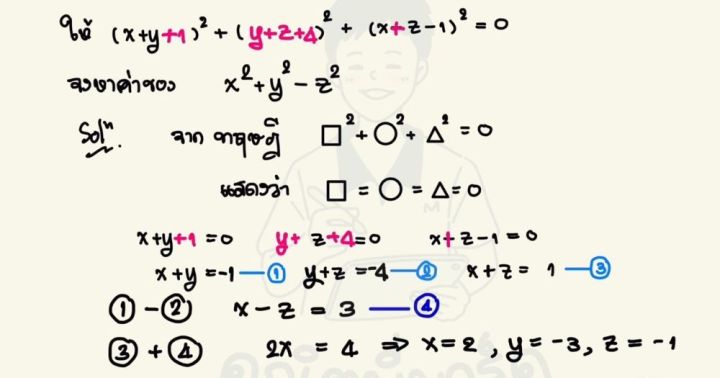 ให้ (x+y+1)² + (y+z+4)² + (x+z-1)² = 0
จงหาค่าของ x² + y² - z²
Solⁿ. จาก ทฤษฎี □² + ○² + △² = 0
แสดงว่า □ = ○ = △ = 0
x+y+1 = 0 y+z+4=0 x+z-1 = 0
x+y = -1 —① y+z = -4 —② x+z = 1 —③
① - ② x - z = 3 —④
③ + ④ 2x = 4 ⇒ x = 2, y = -3, z = -1